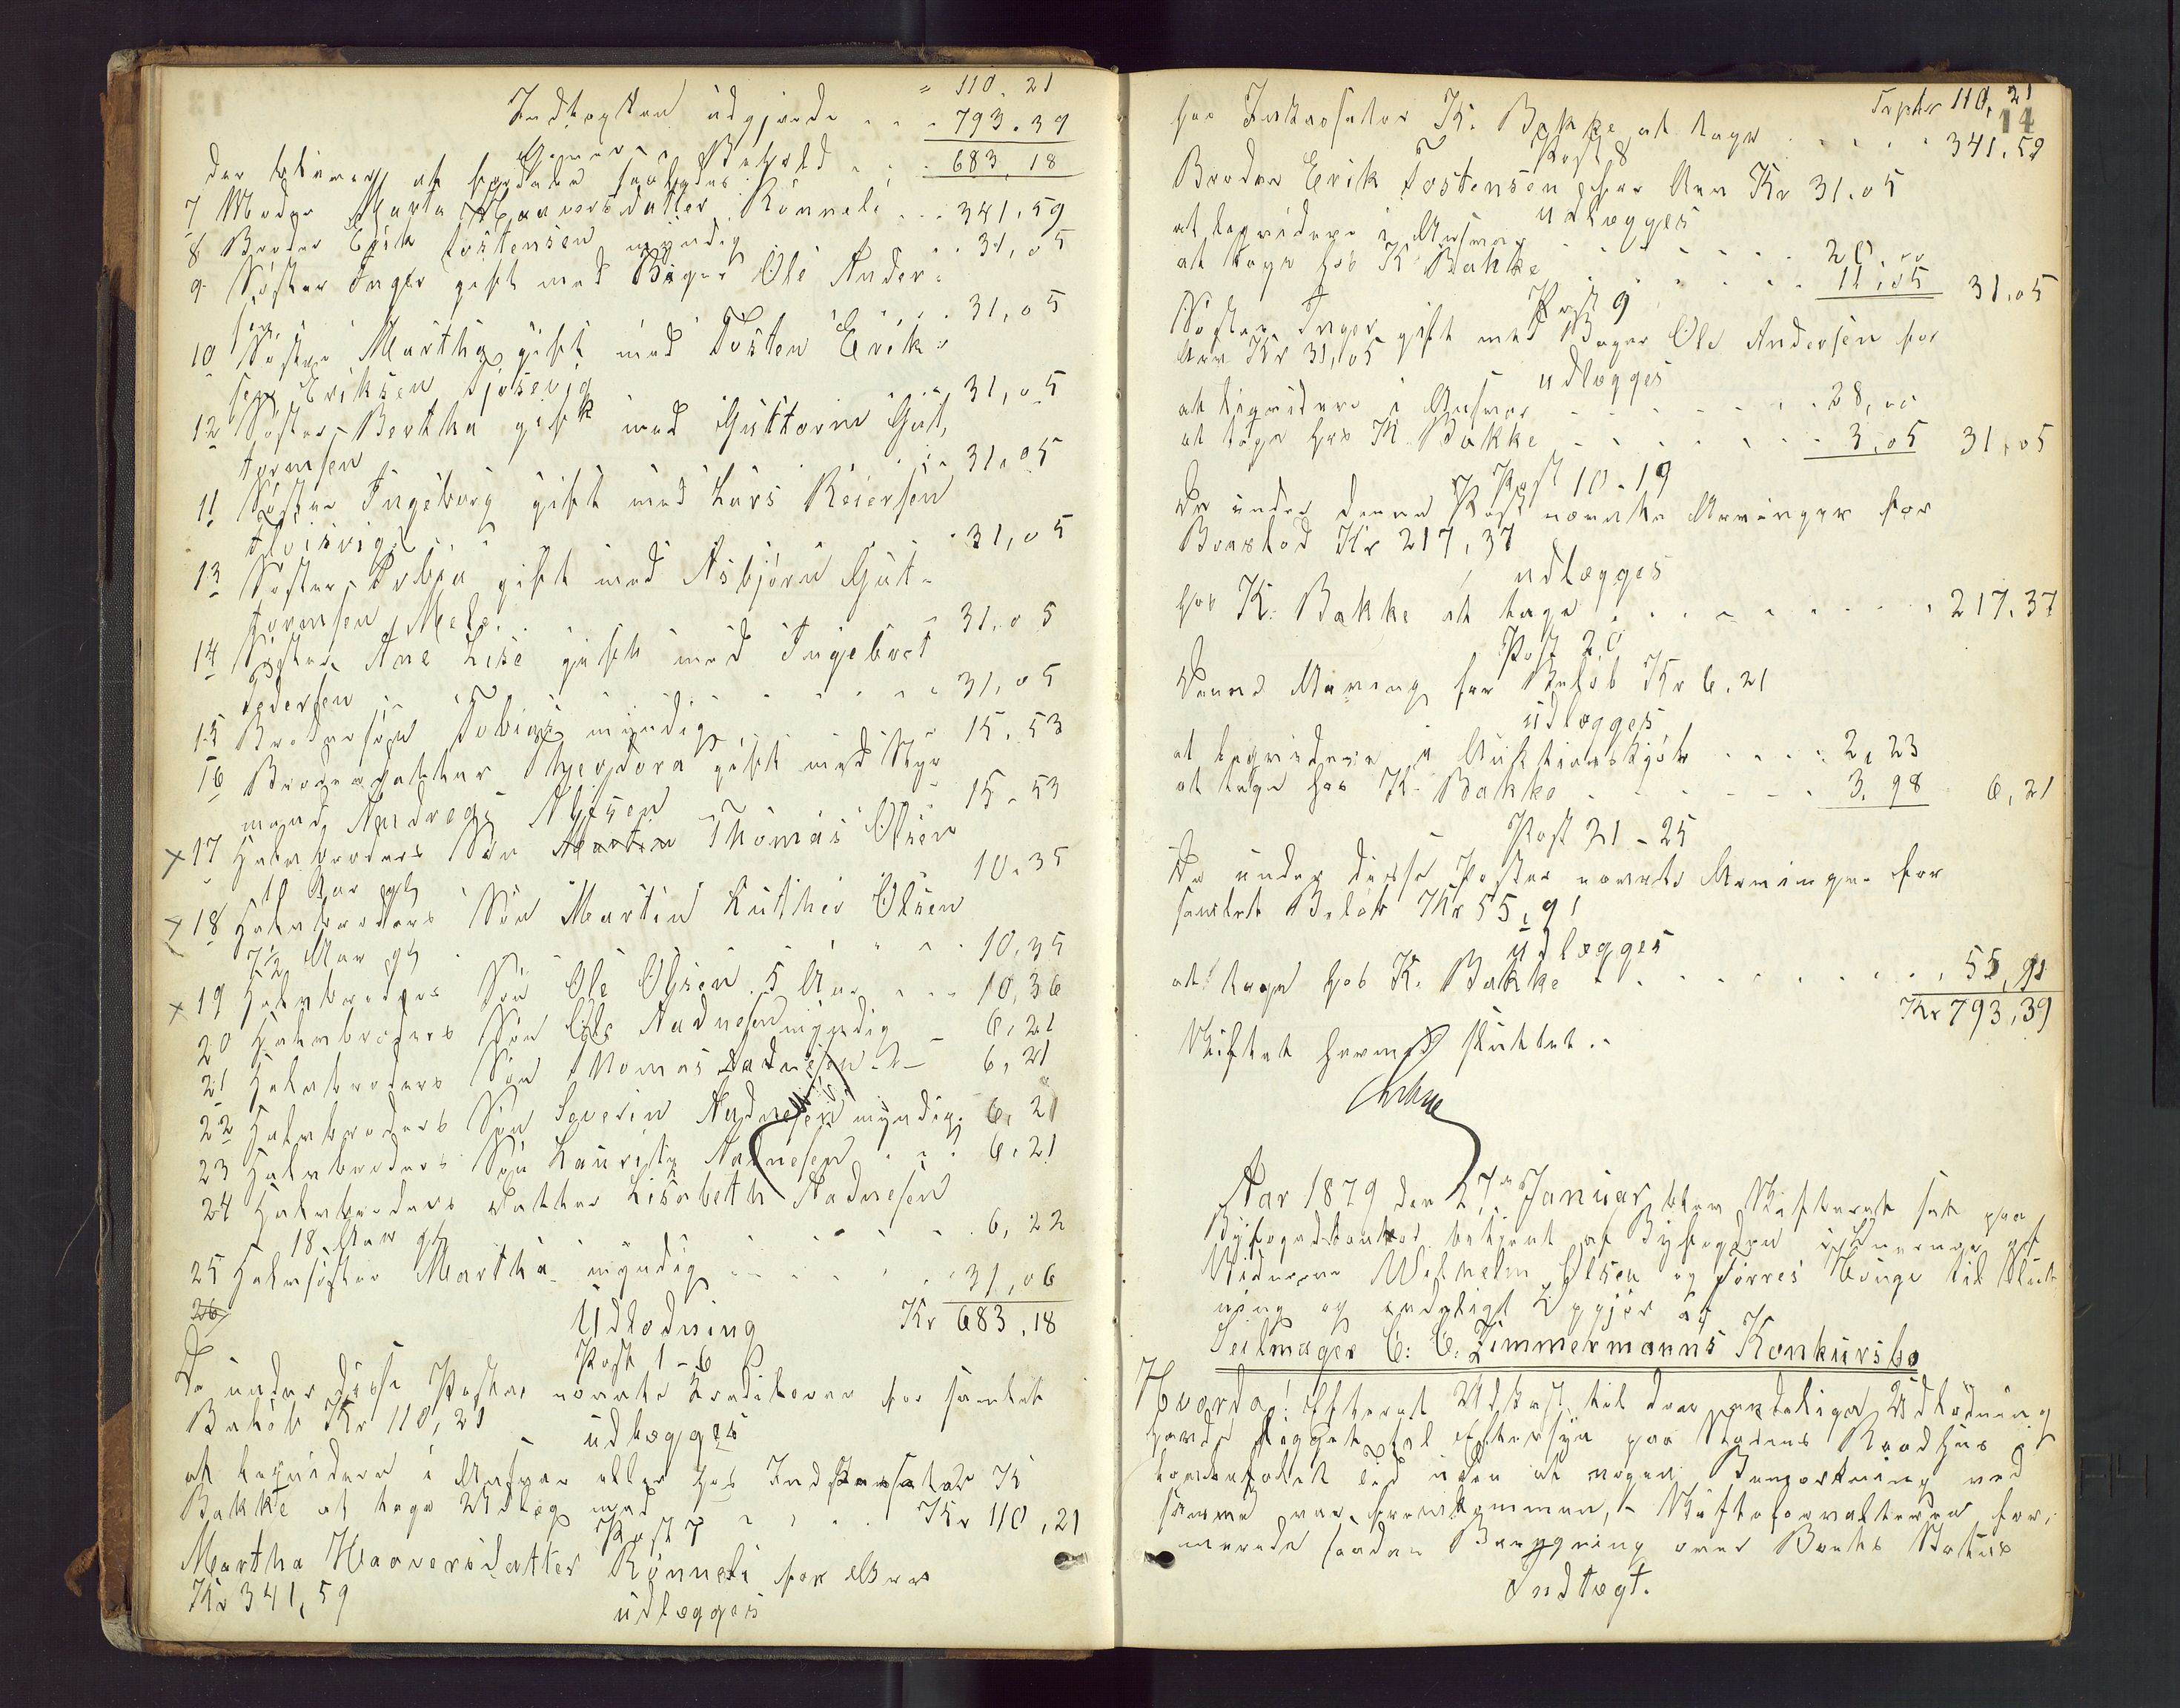 " 110. 21
Indtægten udgjorde . . . 793. 39
Igjen Behold . . . 683, 18
der bliver at fordele saaledes:
7 Moder Marta Haaversdatter Rönneli . . . 341, 59
8 Broder Erik Tostensen myndig . . 31, 05
9 Söster Inger gift med Bager Ole Ander-
sen . . . . 31, 05
10 Söster Martha gift med Tosten Erik-
sen Eriksen Tjosevig . . . 31, 05
12 Söster Bertha gift med Guttorm Gut,
tormsen . . . 31, 05
11 Söster Ingeborg gift med Lars Reiersen
. . 31, 05
13 Söster Torbjør gift med Asbjörn Gut-
tormsen Mele . . 31, 05
14 Söster Ane Lise gift med Ingebret
Pedersen . . . . . . 31, 05
15 Brodersön Tobias myndig . . 15, 53
16 Broderdatter Theodora gift med Styr
mand Andreas . . 15, 53
x 17 Halvbroders Sön Martin Thomas Olsen
10 Aar gl 10, 35
x 18 Halvbroders Sön Martin Luther Olsen
7 1/2 Aar gl . . . . . 10, 35
x 19 Halvbroders Sön Ole Olsen 5 Aar . . . 10, 36
20 Halvbroders Sön Ole Aadnesen myndig 6, 21
21 Halvbroders Sön Thomas Aadnesen - " - 6, 21
22 Halvbroders Sön Severin Aadnesen myndig. 6, 21
23 Halvbroders Sön Lauritz Aadnesen . . . 6, 21
24 Halvbroders Datter Lisabeth Aadnesen
18 Aar gl . . . . . 6, 22
25 Halvsöster Martha myndig . . . . 31, 06
26 Kr 683, 18
Udlodning
Post 1 - 6
De under disse Poster nævnte Kreditorer for samlet
Beløb Kr 110, 21
udlægges
at liqvidere i Massen eller hos Indkassator K
Bakke at tage Udlæg med . . . Kr 110, 21
Post 7
Martha Haaversdatter Rönneli for Arv
Kr 341, 59
udlægges
Trpter 110, 21
14
hos Inkassator K. Bakke at tage . . . . . 341. 59
Post 8
Broder Erik Tostensen for Arv Kr 31. 05
udlægges
at liqvidere i Massen . . . . . 20. 00
at tage hos K Bakke . . . . 11, 05 31, 05
Post 9
Söster Inger gift med Bager Ole Andersen for
Arv Kr 31, 05
udlægges
at liqvidere i Massen . . . . . . 28, 00
at tage hos K. Bakke . . . . . . 3, 05 31, 05
Post 10 - 19
De under denne Post nævnte Arvinger for
Kr 217, 37
udlægges
hos K. Bakke at tage . . . . . . . . 217. 37
Post 20
Denne Arving for Beløb Kr 6. 21
udlægges
at liqvidere i Auktionskjøb . . . . 2, 23
at tage hos K. Bakke . . . . . 3. 98 6, 21
Post 21 - 25
De under disse Poster nævnte Arvinger for
samlet Beløb Kr 55, 91
udlægges
at tage hos K. Bakke . . . . . . . . 55, 91
Kr 793, 39
Skiftet hermed sluttet. -
Aar 1879 den 27de Januar blev Skifteret sat paa
Byfogedkontor betjent af Byfogden i Overvær af
Vidnerne Wilhelm Olsen og Torres Hauge til Slut
ning og endeligt Opgjør af
Seilmager C: C. Zimmermanns Konkursbo
Hvorda! Efterat Udkast til den endelige Udlodning
havde ligget til Eftersyn paa Stadens Raadhus i
lovbefalet Tid uden at nogen Bemærkning ved
samme var fremkommen, - Skifteforvalteren for,
merede saadan Beregning over Boets Status
Indtægt.